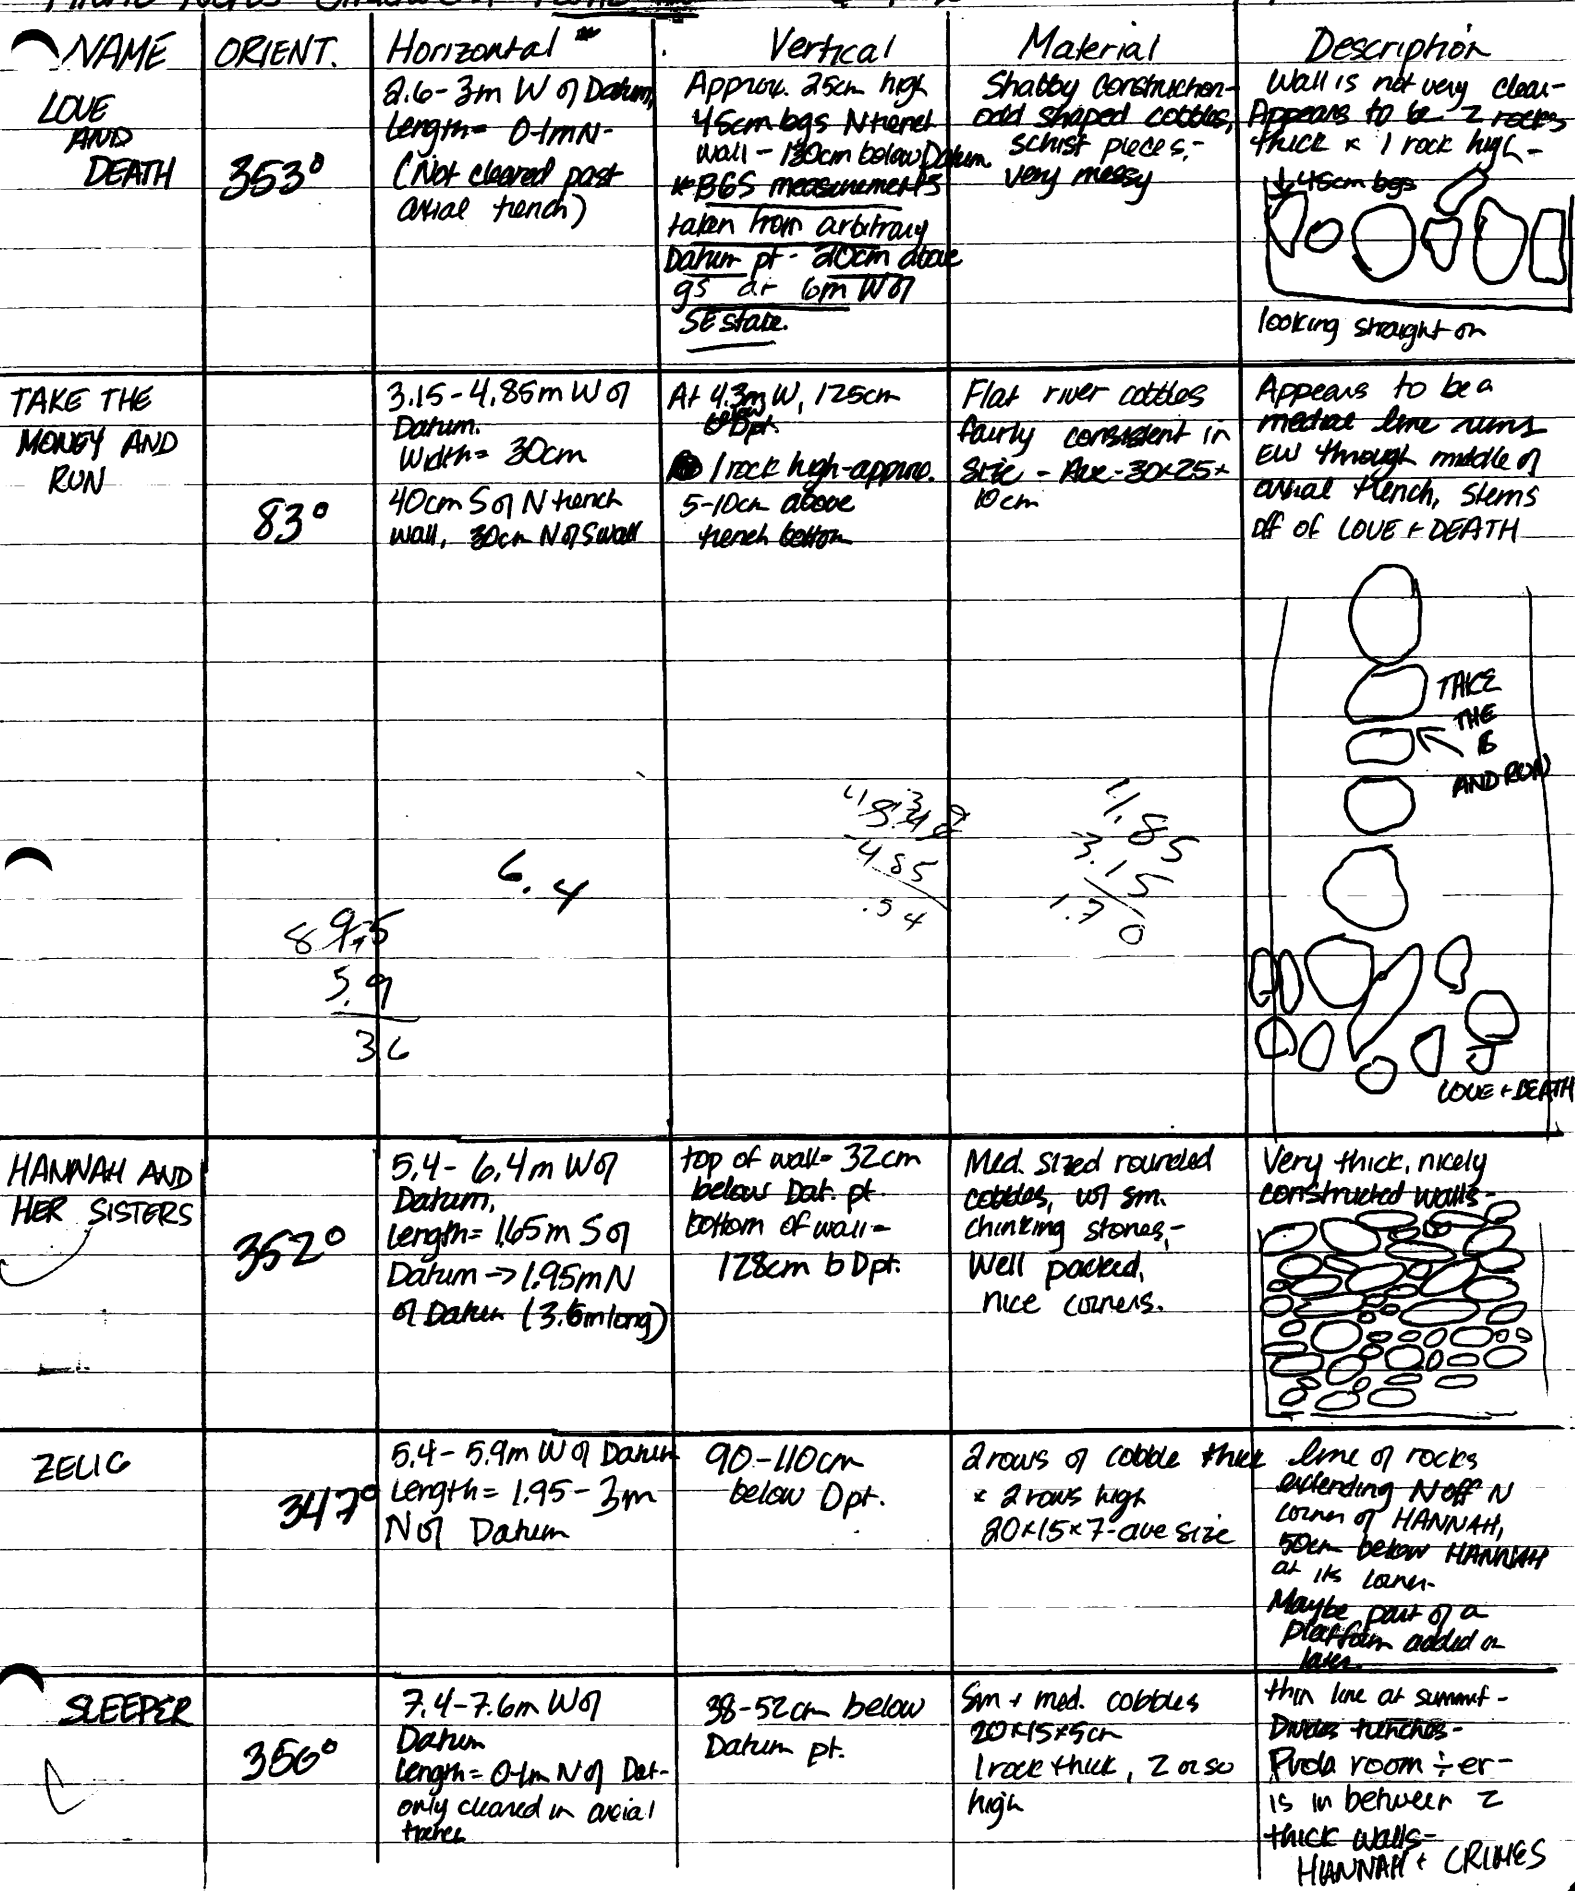 NAME ORIENT. Horizontal Vertical Material Description
LOVE
AND
DEATH
353°
2.6-3m W of Datum,
Length= 0-1m N-
(Not cleared past
axial trench)
Approx. 25cm high
45cm bgs N trench
wall - 130cm below Datum
*BGS measurements
taken from arbitrary
Datum pt - 20cm above
gs at 6m W of
SE stake.
Shabby construction-
odd shaped cobbles,
schist pieces,-
very messy
Wall is not very clear-
Appears to be 2 rocks
thick x 1 rock high-
↓45cm bgs
looking straight on
TAKE THE
MONEY AND
RUN
83°
3.15-4.85m W of
Datum.
Width= 30cm
40cm S of N trench
wall, 30cm N of S wall
At 4.3m W, 125cm
below
Dpt.
1 rock high-approx.
5-10cm above
trench bottom
Flat river cobbles
fairly consistent in
size - Ave-30x25x
10cm
Appears to be a
medial line runs
EW through middle of
axial trench, stems
off of LOVE + DEATH
TAKE
THE
$
AND RUN
4.85
3.15
1.70
4.85
.54
6.4
5.9
3.6
LOVE + DEATH
HANNAH AND
HER SISTERS
352°
5.4-6.4m W of
Datum,
Length= 1.65m S of
Datum -> 1.95m N
of Datum (3.6m long)
top of wall= 32cm
below Dat. pt.
bottom of wall=
128cm b Dpt.
Med. sized rounded
cobbles, w/ sm.
chinking stones,-
Well packed,
nice corners.
Very thick, nicely
constructed walls-
ZELIG
347°
5.4-5.9m W of Datum
Length= 1.95-3m
N of Datum
90-110cm
below Dpt.
2 rows of cobble thick
x 2 rows high
20x15x7-ave size
line of rocks
extending N off N
corner of HANNAH,
50cm below HANNAH
at its corner-
Maybe part of a
platform added on
later.
SLEEPER
356°
7.4-7.6m W of
Datum
Length= 0-1m N of Dat-
only cleared in axial
trench
38-52cm below
Datum pt.
Sm + med. cobbles
20x15x5cm
1 rock thick, 2 or so
high
thin line at summit-
Divides trenches-
Proba room ÷er-
is in between 2
thick walls-
HANNAH + CRIMES